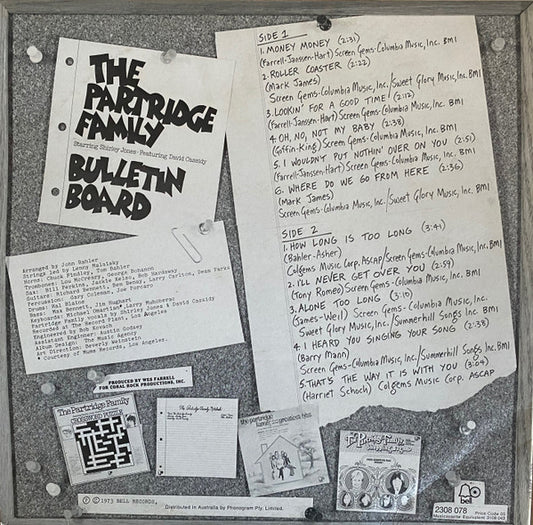 THE
PARTRIDGE
FAMILY
Starring Shirley Jones · Featuring David Cassidy
BULLETIN
BOARD
SIDE 1
1. MONEY MONEY (2:31)
(Farrell-Janssen-Hart) Screen Gems-Columbia Music, Inc. BMI
2. ROLLER COASTER (2:22)
(Mark James)
Screen Gems-Columbia Music, Inc./Sweet Glory Music, Inc. BMI
3. LOOKIN' FOR A GOOD TIME! (2:12)
(Farrell-Janssen-Hart) Screen Gems-Columbia Music, Inc. BMI
4. OH, NO, NOT MY BABY (2:38)
(Goffin-King) Screen Gems-Columbia Music, Inc. BMI
5. I WOULDN'T PUT NOTHIN' OVER ON YOU (2:51)
(Farrell-Janssen-Hart) Screen Gems-Columbia Music, Inc. BMI
6. WHERE DO WE GO FROM HERE (2:36)
(Mark James)
Screen Gems-Columbia Music, Inc./Sweet Glory Music, Inc. BMI
SIDE 2
1. HOW LONG IS TOO LONG (3:41)
(Bahler-Asher)
Colgems Music Corp. ASCAP/Screen Gems-Columbia Music, Inc. BMI
2. I'LL NEVER GET OVER YOU (2:59)
(Tony Romeo) Screen Gems-Columbia Music, Inc. BMI
3. ALONE TOO LONG (3:10)
(James-Weil) Screen Gems-Columbia Music, Inc.
Sweet Glory Music, Inc./Summerhill Songs Inc. BMI
4. I HEARD YOU SINGING YOUR SONG (2:38)
(Barry Mann)
Screen Gems-Columbia Music, Inc./Summerhill Songs, Inc. BMI
5. THAT'S THE WAY IT IS WITH YOU (3:04)
(Harriet Schock) Colgems Music Corp. ASCAP
Arranged by John Bahler
Strings led by Lenny Malarsky
Horns: Chuck Findley, Tom Bahler
Trombone: Lou McCreary, George Bohanon
Sax: Bill Perkins, Jackie Kelso, Bob Hardaway
Guitars: Richard Bennett, Ben Benay, Larry Carlton, Dean Parks
Percussion: Gary Coleman, Joe Porcaro
Drums: Hal Blaine
Bass: Max Bennett, Jim Hughart
Keyboards: Michael Omartian, Larry Muhoberac
Partridge Family vocals by Shirley Jones & David Cassidy
Recorded at The Record Plant, Los Angeles
Engineered by Bob Kovach
Assistant Engineer: Austin Godsey
Album Design: The Music Agency
Art Direction: Beverly Weinstein
* Courtesy of Mums Records, Los Angeles.
PRODUCED BY WES FARRELL
FOR CORAL ROCK PRODUCTIONS, INC.
The Partridge Family
CROSSWORD PUZZLE
The Partridge Family Notebook
the partridge
family at home with their greatest hits
The Partridge Family
Ⓟ © 1973 BELL RECORDS,
Distributed in Australia by Phonogram Pty. Limited.
bell
2308 078
Price Code 05
Musicassette Equivalent 3108 043